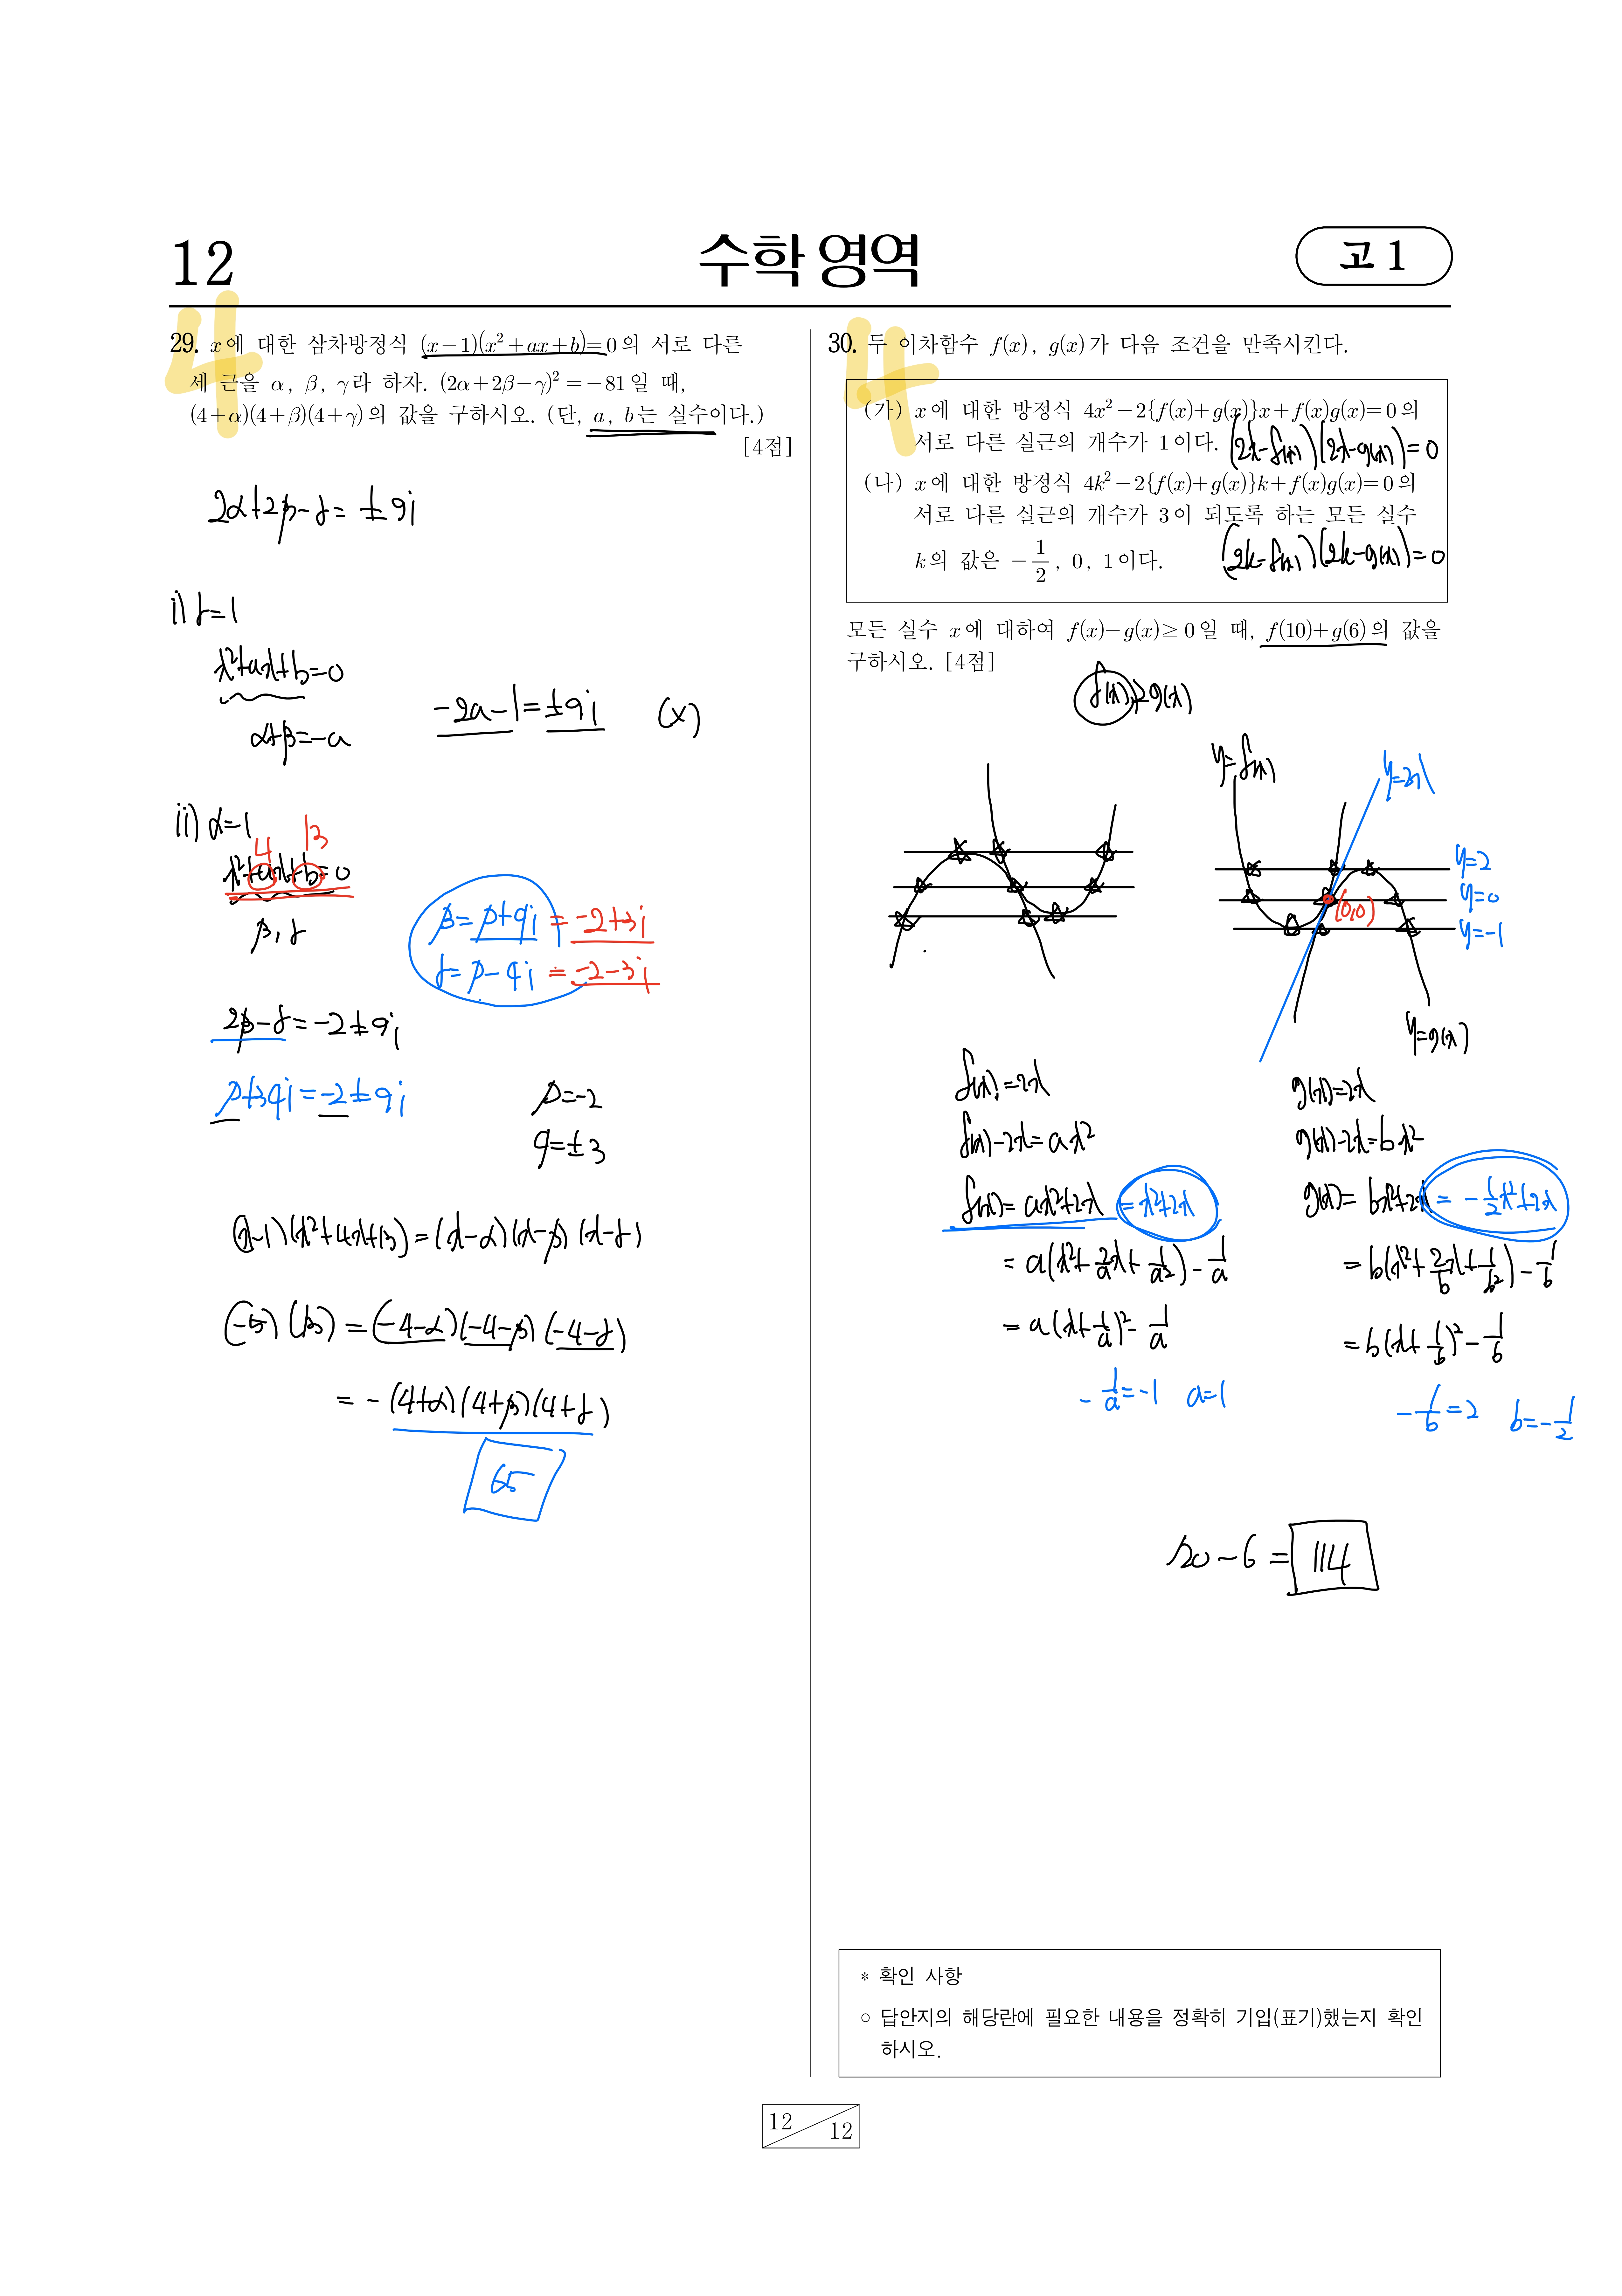 12
수학 영역
고 1
4
29. x에 대한 삼차방정식 (x-1)(x²+ax+b)=0의 서로 다른
세 근을 α, β, γ라 하자. (2α+2β-γ)²=-81일 때,
(4+α)(4+β)(4+γ)의 값을 구하시오. (단, a, b는 실수이다.)
[4점]
2α+2β-γ= ±9i
i) γ=1
x²+ax+b=0
α+β=-a
-2a-1=±9i (x)
ii) α=1
4 13
x²+ax+b=0
β, γ
β=p+qi = -2+3i
γ=p-qi = -2-3i
2β-γ=-2±9i
p+3qi=-2±9i
p=-2
q=±3
(x-1)(x²+4x+13)=(x-α)(x-β)(x-γ)
(-5)(13) = (-4-α)(-4-β)(-4-γ)
= -(4+α)(4+β)(4+γ)
65
4
30. 두 이차함수 f(x), g(x)가 다음 조건을 만족시킨다.
(가) x에 대한 방정식 4x²-2{f(x)+g(x)}x+f(x)g(x)=0의
서로 다른 실근의 개수가 1이다. (2x-f(x))(2x-g(x))=0
(나) x에 대한 방정식 4k²-2{f(x)+g(x)}k+f(x)g(x)=0의
서로 다른 실근의 개수가 3이 되도록 하는 모든 실수
k의 값은 -1/2, 0, 1이다. (2k-f(x))(2k-g(x))=0
모든 실수 x에 대하여 f(x)-g(x)≥0일 때, f(10)+g(6)의 값을
구하시오. [4점]
f(x)≥g(x)
y=f(x)
y=2x
y=2
y=0
(0,0)
y=-1
y=g(x)
f(x)=2x
f(x)-2x=ax²
f(x)=ax²+2x =x²+2x
= a(x²+2/a x+1/a²)-1/a
= a(x+1/a)²-1/a
-1/a=-1 a=1
g(x)=2x
g(x)-2x=bx²
g(x)= bx²+2x = -1/2x²+2x
= b(x²+2/b x+1/b²)-1/b
= b(x+1/b)²-1/b
-1/b=2 b=-1/2
120-6= 114
* 확인 사항
○ 답안지의 해당란에 필요한 내용을 정확히 기입(표기)했는지 확인
하시오.
12
12